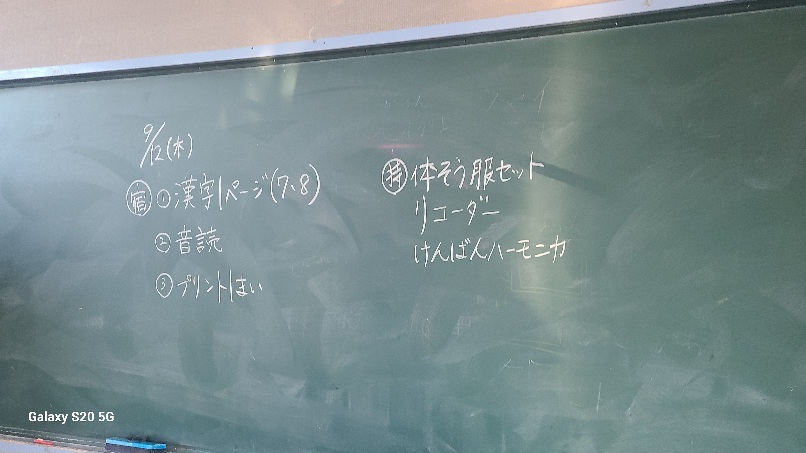 9/12(水)
宿 ①漢字1ページ(7、8)
②音読
③プリント1まい
持 体そう服セット
リコーダー
けんばんハーモニカ
Galaxy S20 5G